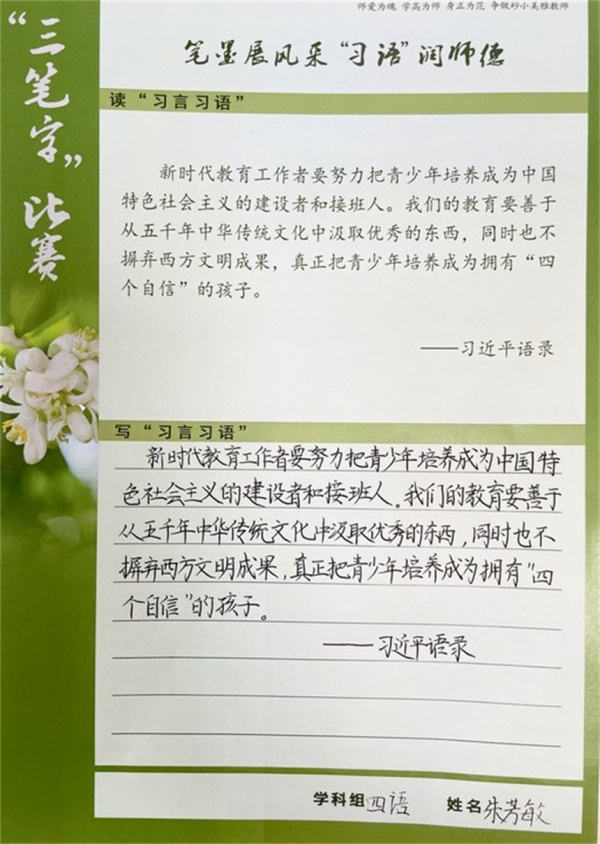 师爱为魂 学高为师 身正为范 争做砂小美雅教师
“三笔字”比赛
笔墨展风采“习语”润师德
读“习言习语”
新时代教育工作者要努力把青少年培养成为中国
特色社会主义的建设者和接班人。我们的教育要善于
从五千年中华传统文化中汲取优秀的东西，同时也不
摒弃西方文明成果，真正把青少年培养成为拥有“四
个自信”的孩子。
——习近平语录
写“习言习语”
新时代教育工作者要努力把青少年培养成为中国特
色社会主义的建设者和接班人。我们的教育要善于
从五千年中华传统文化中汲取优秀的东西，同时也不
摒弃西方文明成果，真正把青少年培养成为拥有“四
个自信”的孩子。
——习近平语录
学科组 四语 姓名 朱芳敏